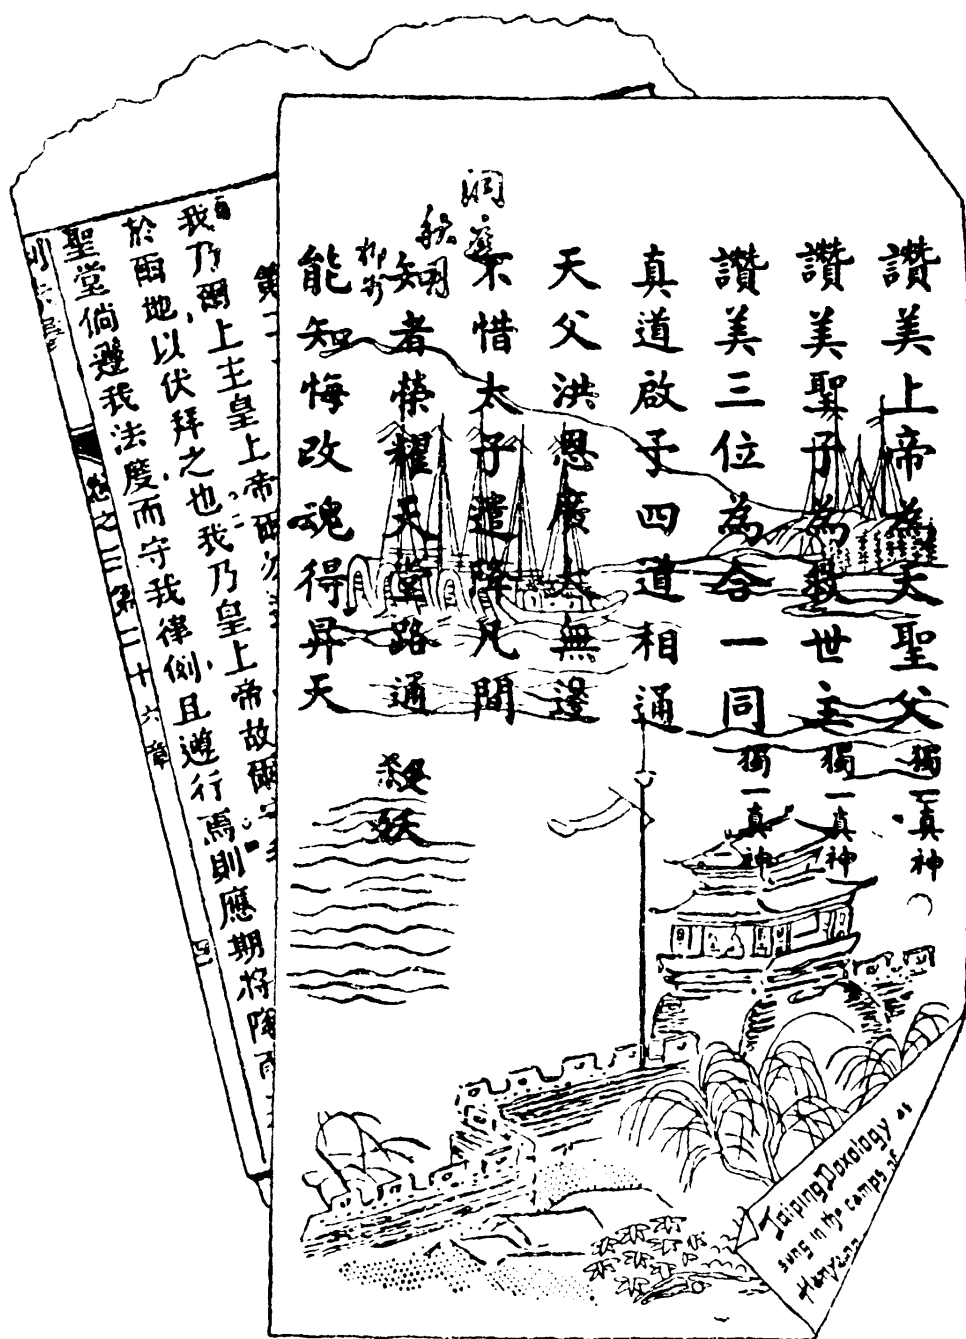 讚美上帝為天聖父獨一真神
讚美聖子為救世主獨一真神
讚美三位為合一同獨一真神
真道啟子四道相通
天父洪恩廣大無邊
不惜太子遣降凡間
知者榮耀天堂路通
能知悔改魂得昇天
殺妖
我乃爾上主皇上帝爾勿
於爾地以伏拜之也我乃皇上帝故爾
聖堂倘遵我法度而守我律例且遵行焉則應期將降雨
卷之三第二十六章
四
Taiping Doxology as
sung in the camps of
Hanyang